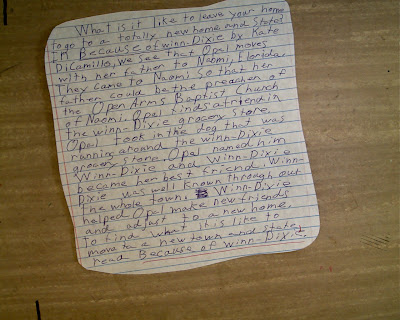 What is it like to leave your home
to go to a totally new home and state?
In Because of Winn-Dixie by Kate
DiCamillo, we see that Opal moves
with her father to Naomi, Florida.
They came to Naomi so that her
father could be the preacher of
the Open Arms Baptist Church
of Naomi. Opal finds a friend in
the Winn-Dixie grocery store.
Opal took in the dog that was
running around the Winn-Dixie
grocery store. Opal named him
Winn-Dixie and Winn-Dixie
became her best friend. Winn-
Dixie was well known through out
the whole town. Winn-Dixie
helped Opal make new friends
and adjust to a new home.
To find what it is like to
move to a new town and state,
read Because of Winn-Dixie.